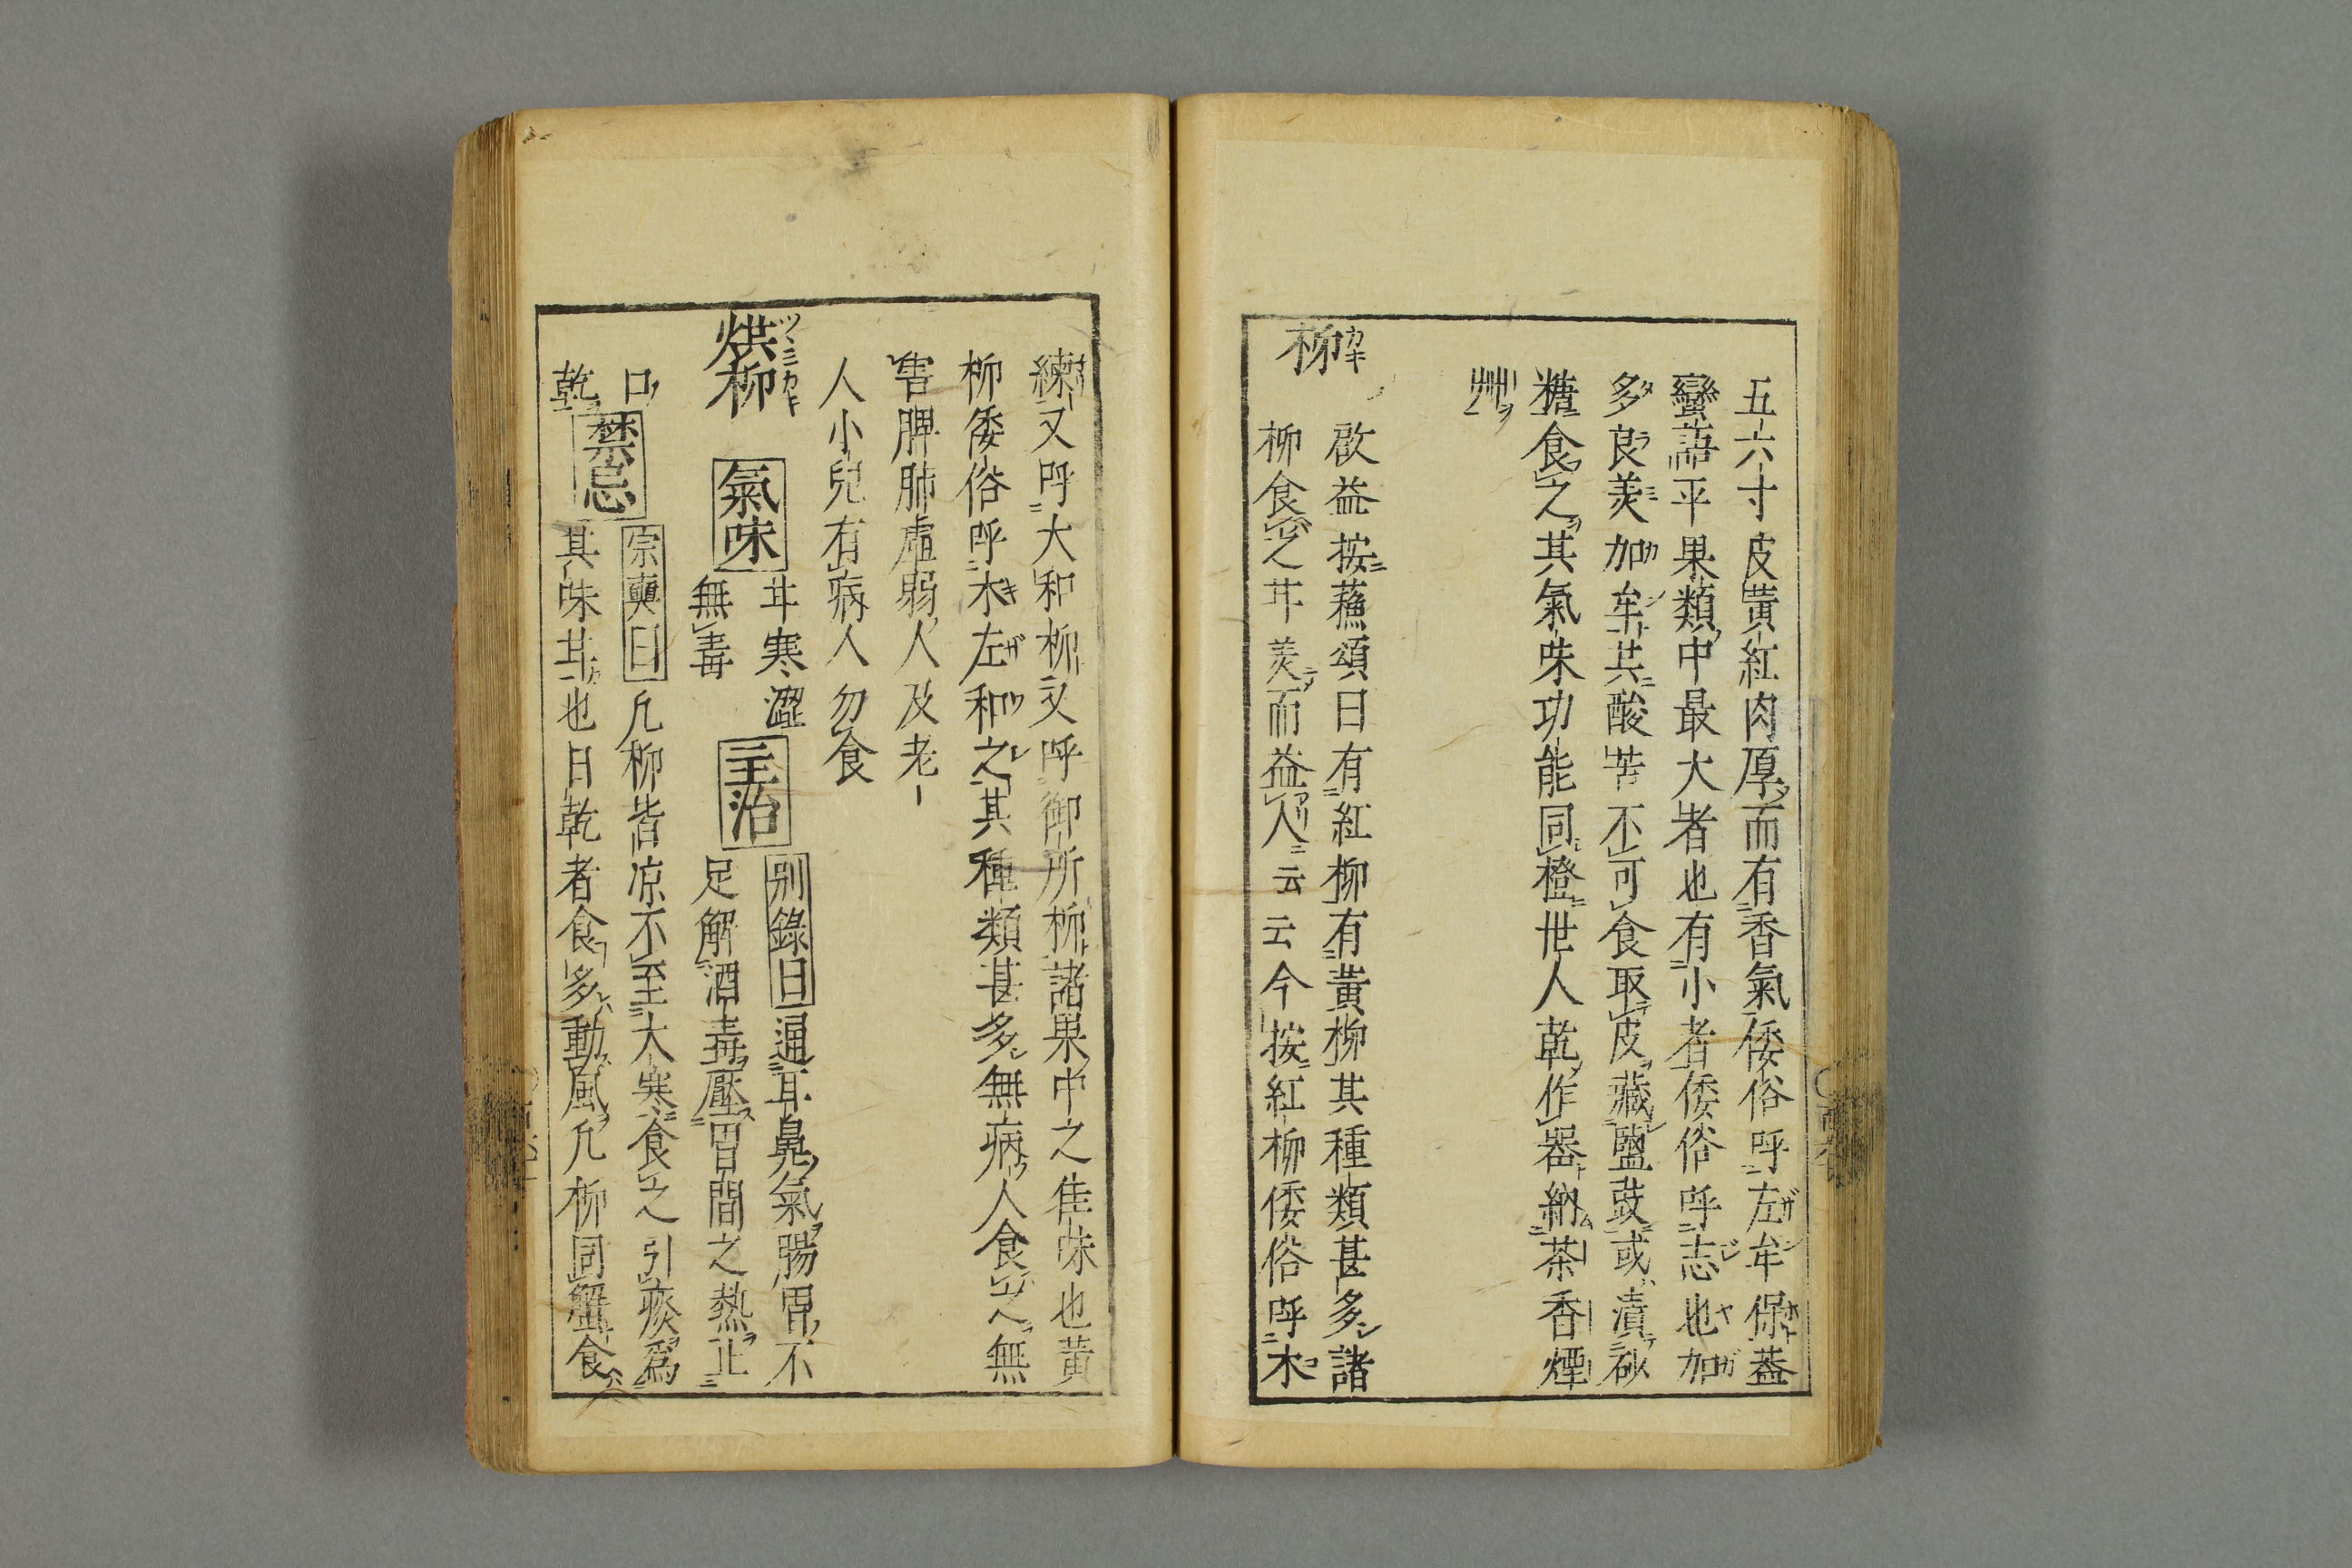 五六寸皮黄紅肉厚而有香氣倭俗呼左牟保蓋
蠻語平果類中最大者也有小者倭俗呼志也加
多良羙加牟共酸苦不可食取皮藏鹽豉或漬砂
糖食之其氣味功能同橙世人乾作器納茶香煙
艸
柳
啟益按蘓頌曰有紅柳有黄柳其種類甚多諸
柳食之甘羙而益人云云今按紅柳倭俗呼木
練又呼大和柳又呼御所柳諸果中之佳味也黄
柳倭俗呼木左和之其種類甚多無病人食之無
害脾肺虚弱人及老
人小兒有病人勿食
烘柳
氣味
甘寒澀
無毒
主治
別錄曰通耳鼻氣腸胃不
足解酒毒壓胃間之熱止
口
乾
禁忌
宗奭曰凢柳皆凉不至大寒食之引痰爲
其味甘也日乾者食多動風凢柳同蟹食